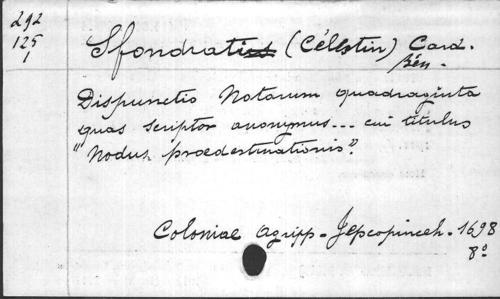 292
125
1
Sfondratius (Célestin) Card.
Bén.
Dispunctio Notarum quadraginta
quas scriptor anonymus... cui titulus
"Nodus praedestinationis".
Coloniae agripp. 1698
8°